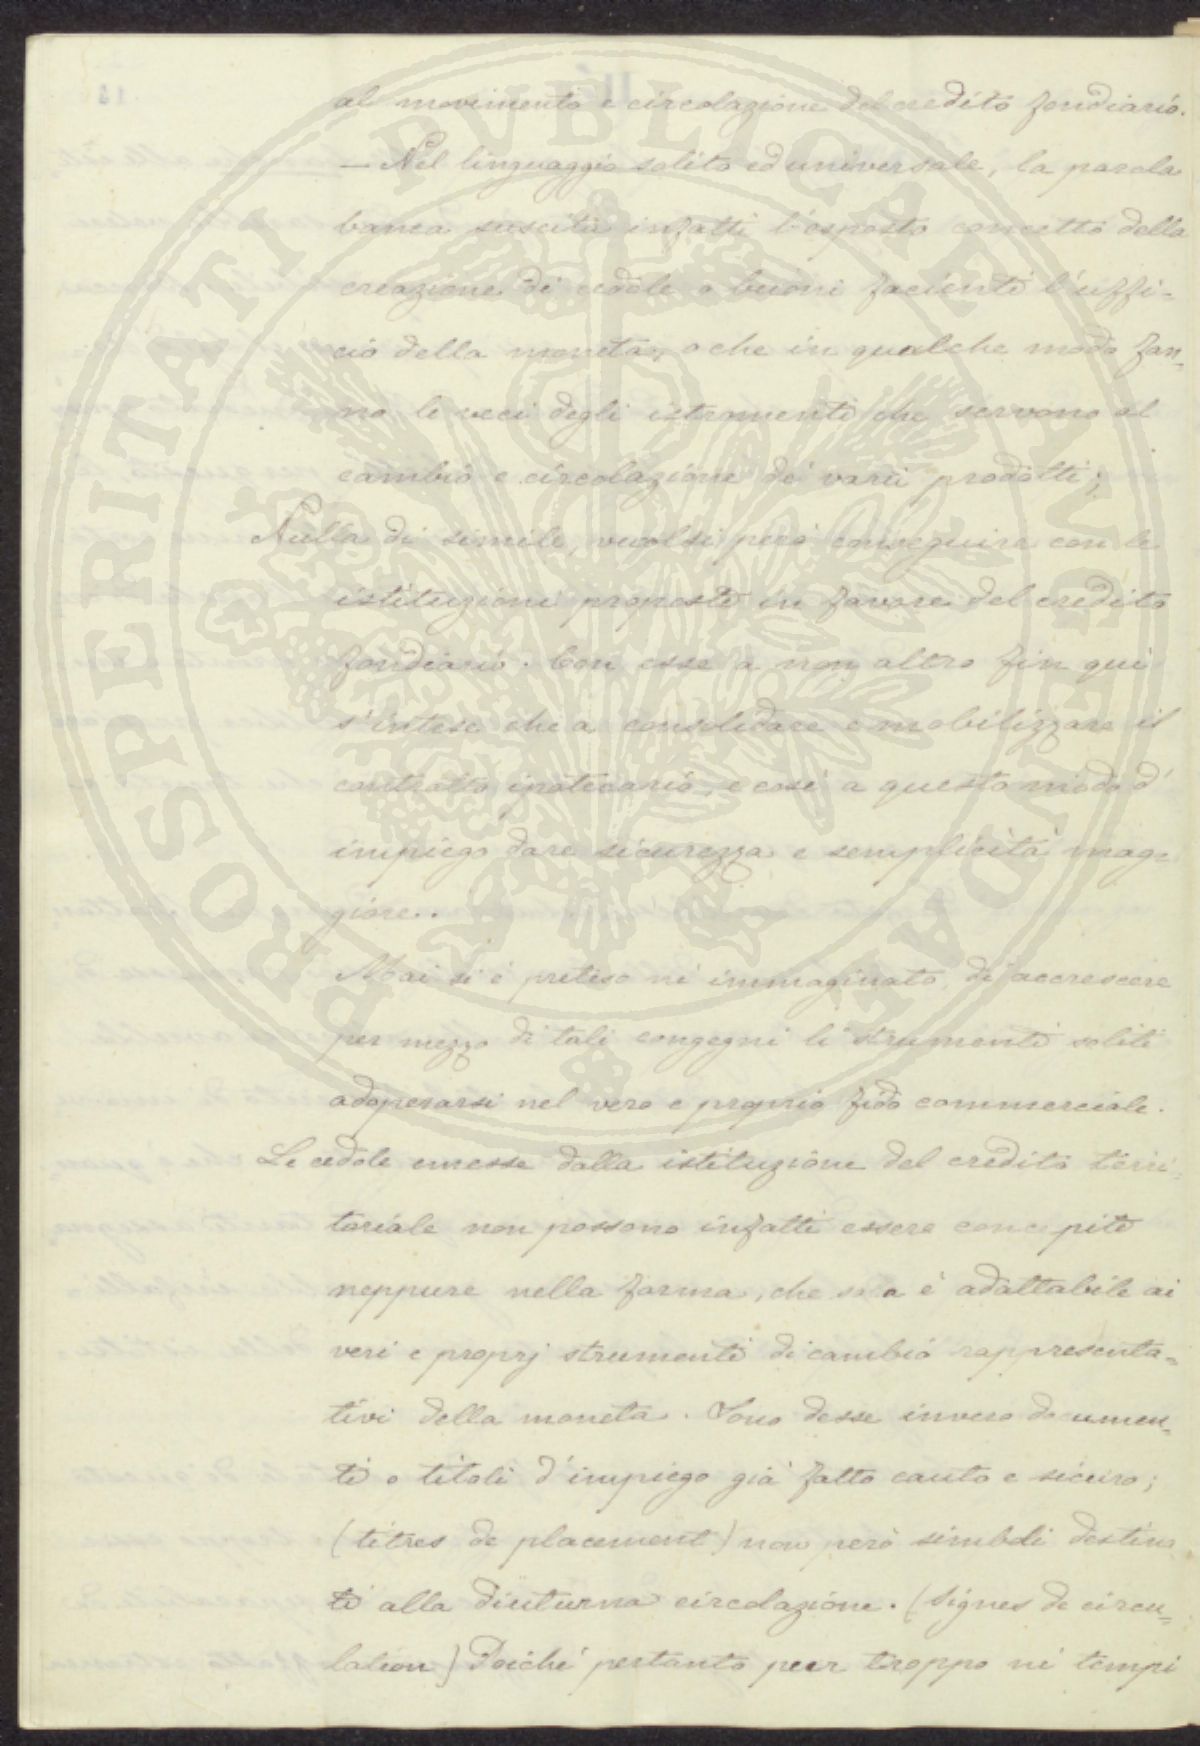 al movimento e circolazione del credito fondiario.
— Nel linguaggio solito ed universale, la parola
banca suscita infatti l'esposto concetto della
creazione di cedole o buoni facienti l'uffi-
cio della moneta, o che in qualche modo fan-
no le veci degli istrumenti che servono al
cambio e circolazione de' varii prodotti;
Nulla di simile, vuolsi però conseguire con le
istituzioni proposte in favore del credito
fondiario. Con esse a non altro fin qui
s'intese che a consolidare e mobilizzare il
contratto ipotecario, e così a questo modo d'
impiego dare sicurezza e semplicità mag-
giore.
Mai si è preteso nè immaginato, di accrescere
per mezzo di tali congegni li strumenti soliti
adoperarsi nel vero e proprio fido commerciale.
Le cedole emesse dalla istituzione del credito terri-
toriale non possono infatti essere concepite
neppure nella forma, che sola è adattabile ai
veri e proprj strumenti di cambio rappresenta-
tivi della moneta. Sono desse invero documen-
ti o titoli d'impiego già fatto cauto e sicuro;
(titres de placement) non però simboli destina
ti alla diuturna circolazione. (Signes de circu-
lation) Poichè pertanto pur troppo ni tempi
PROSPERITATI PVBLICAE AVGENDAE